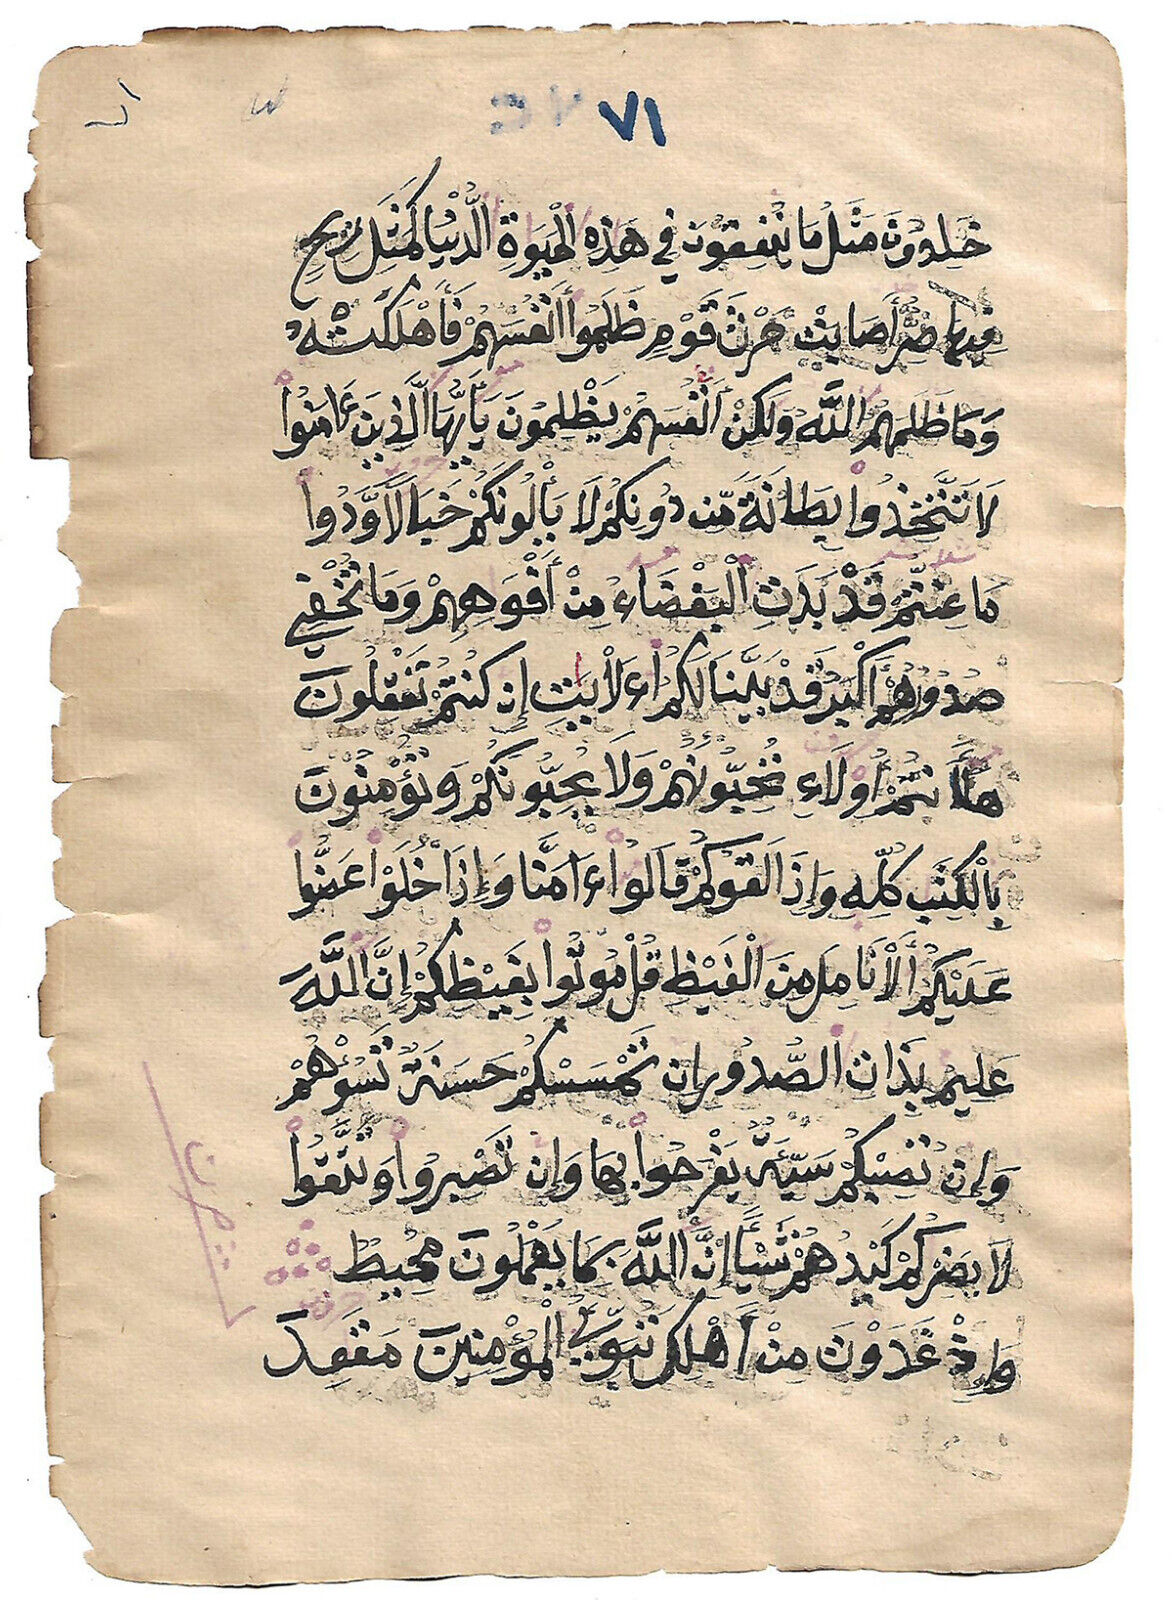 ٧١
خَٰلِدُونَ مَثَلُ مَا يُنفِقُونَ فِي هَٰذِهِ الْحَيَوٰةِ الدُّنْيَا كَمَثَلِ رِيحٍ
فِيهَا صِرٌّ أَصَابَتْ حَرْثَ قَوْمٍ ظَلَمُوا أَنفُسَهُمْ فَأَهْلَكَتْهُ
وَمَا ظَلَمَهُمُ اللَّهُ وَلَٰكِنْ أَنفُسَهُمْ يَظْلِمُونَ يَٰأَيُّهَا الَّذِينَ ءَامَنُوا
لَا تَتَّخِذُوا بِطَانَةً مِّن دُونِكُمْ لَا يَأْلُونَكُمْ خَبَالًا وَدُّوا
مَا عَنِتُّمْ قَدْ بَدَتِ الْبَغْضَاءُ مِنْ أَفْوَٰهِهِمْ وَمَا تُخْفِي
صُدُورُهُمْ أَكْبَرُ قَدْ بَيَّنَّا لَكُمُ الْءَايَٰتِ إِن كُنتُمْ تَعْقِلُونَ
هَٰأَنتُمْ أُولَاءِ تُحِبُّونَهُمْ وَلَا يُحِبُّونَكُمْ وَتُؤْمِنُونَ
بِالْكِتَٰبِ كُلِّهِ وَإِذَا لَقُوكُمْ قَالُوا ءَامَنَّا وَإِذَا خَلَوْا عَضُّوا
عَلَيْكُمُ الْأَنَامِلَ مِنَ الْغَيْظِ قُلْ مُوتُوا بِغَيْظِكُمْ إِنَّ اللَّهَ
عَلِيمٌ بِذَاتِ الصُّدُورِ إِن تَمْسَسْكُمْ حَسَنَةٌ تَسُؤْهُمْ
وَإِن تُصِبْكُمْ سَيِّئَةٌ يَفْرَحُوا بِهَا وَإِن تَصْبِرُوا وَتَتَّقُوا
لَا يَضُرُّكُمْ كَيْدُهُمْ شَيْـًٔا إِنَّ اللَّهَ بِمَا يَعْمَلُونَ مُحِيطٌ
وَإِذْ غَدَوْتَ مِنْ أَهْلِكَ تُبَوِّئُ الْمُؤْمِنِينَ مَقَٰعِدَ